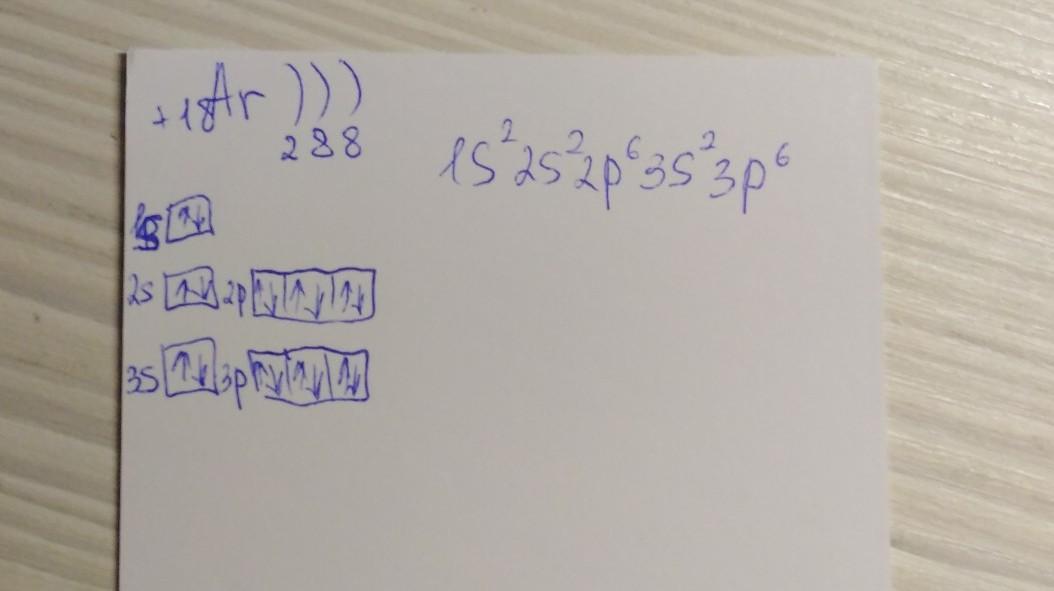 +18Ar )))
2 8 8
1s²2s²2p⁶3s²3p⁶
1s ↑↓
2s ↑↓ 2p ↑↓ ↑↓ ↑↓
3s ↑↓ 3p ↑↓ ↑↓ ↑↓